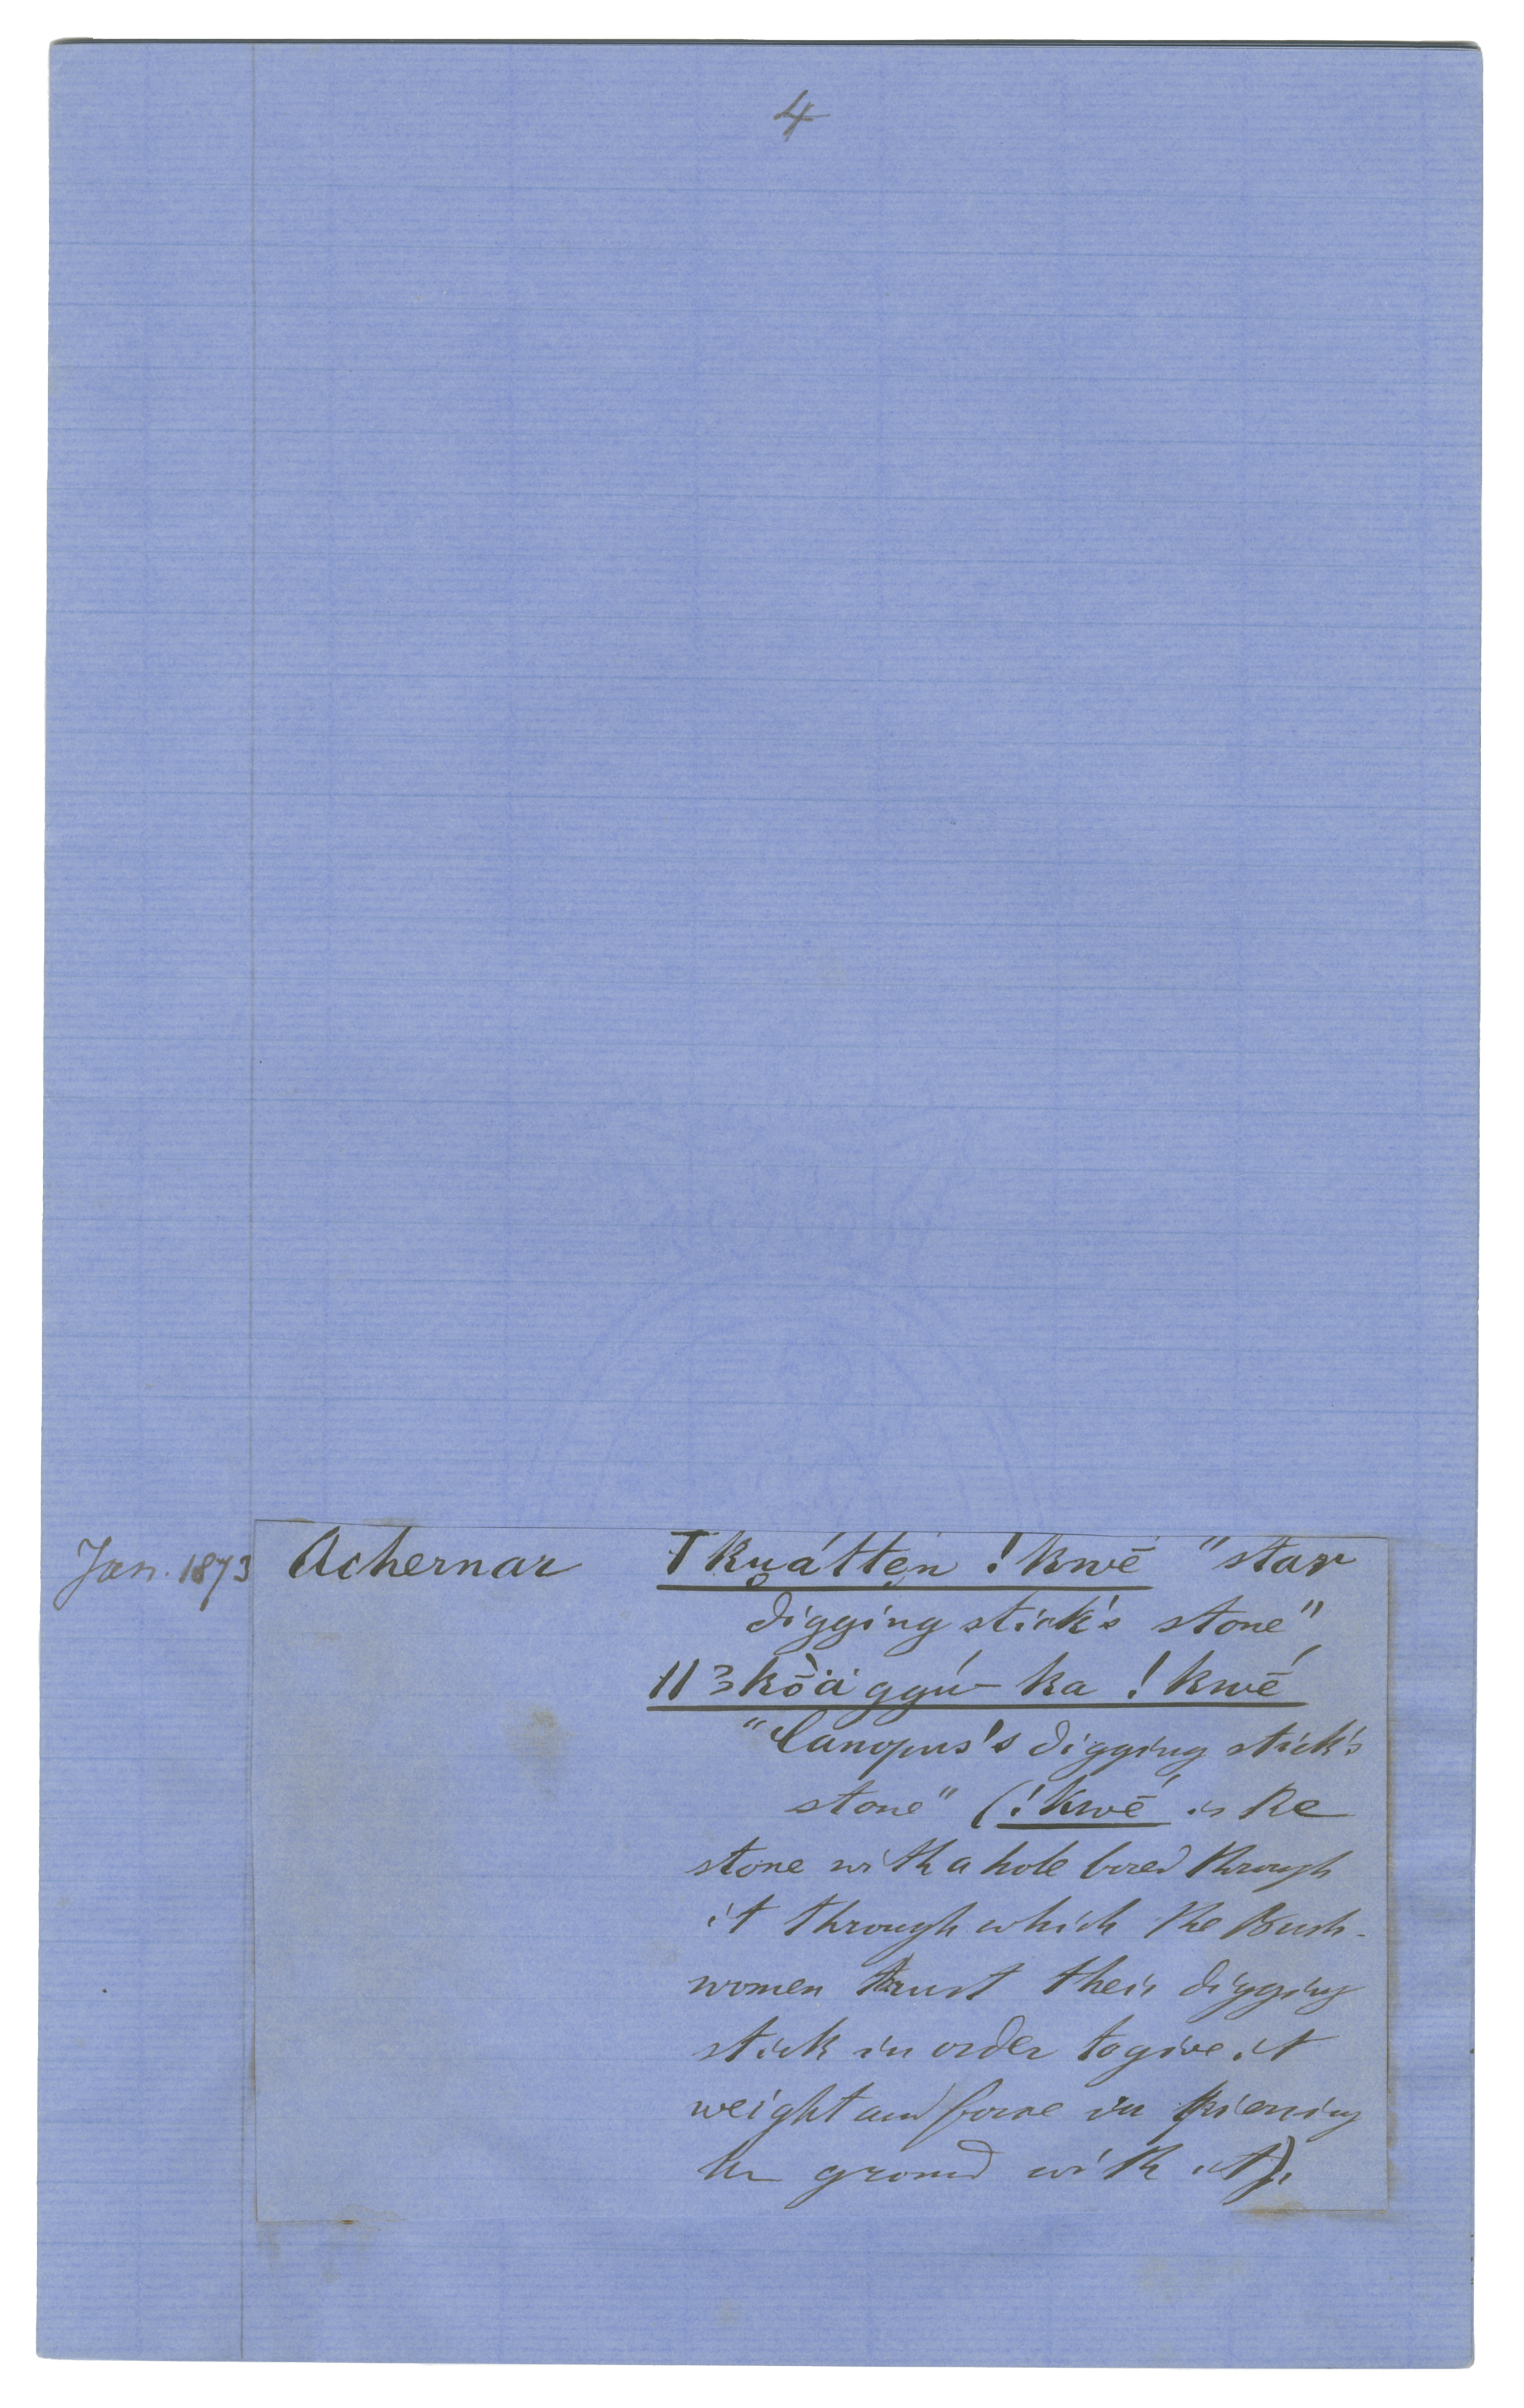 4
Jan. 1873 Achernar Ƭkuátten !kwé̄ "star
digging stick's stone"
ǁɜkȱä ggú-ka !kwé̄
"Canopus's digging stick's
stone" (!kwé̄ is the
stone with a hole bored through
it through which the Bush-
women thrust their digging
stick in order to give it
weight and force in piercing
the ground with it).